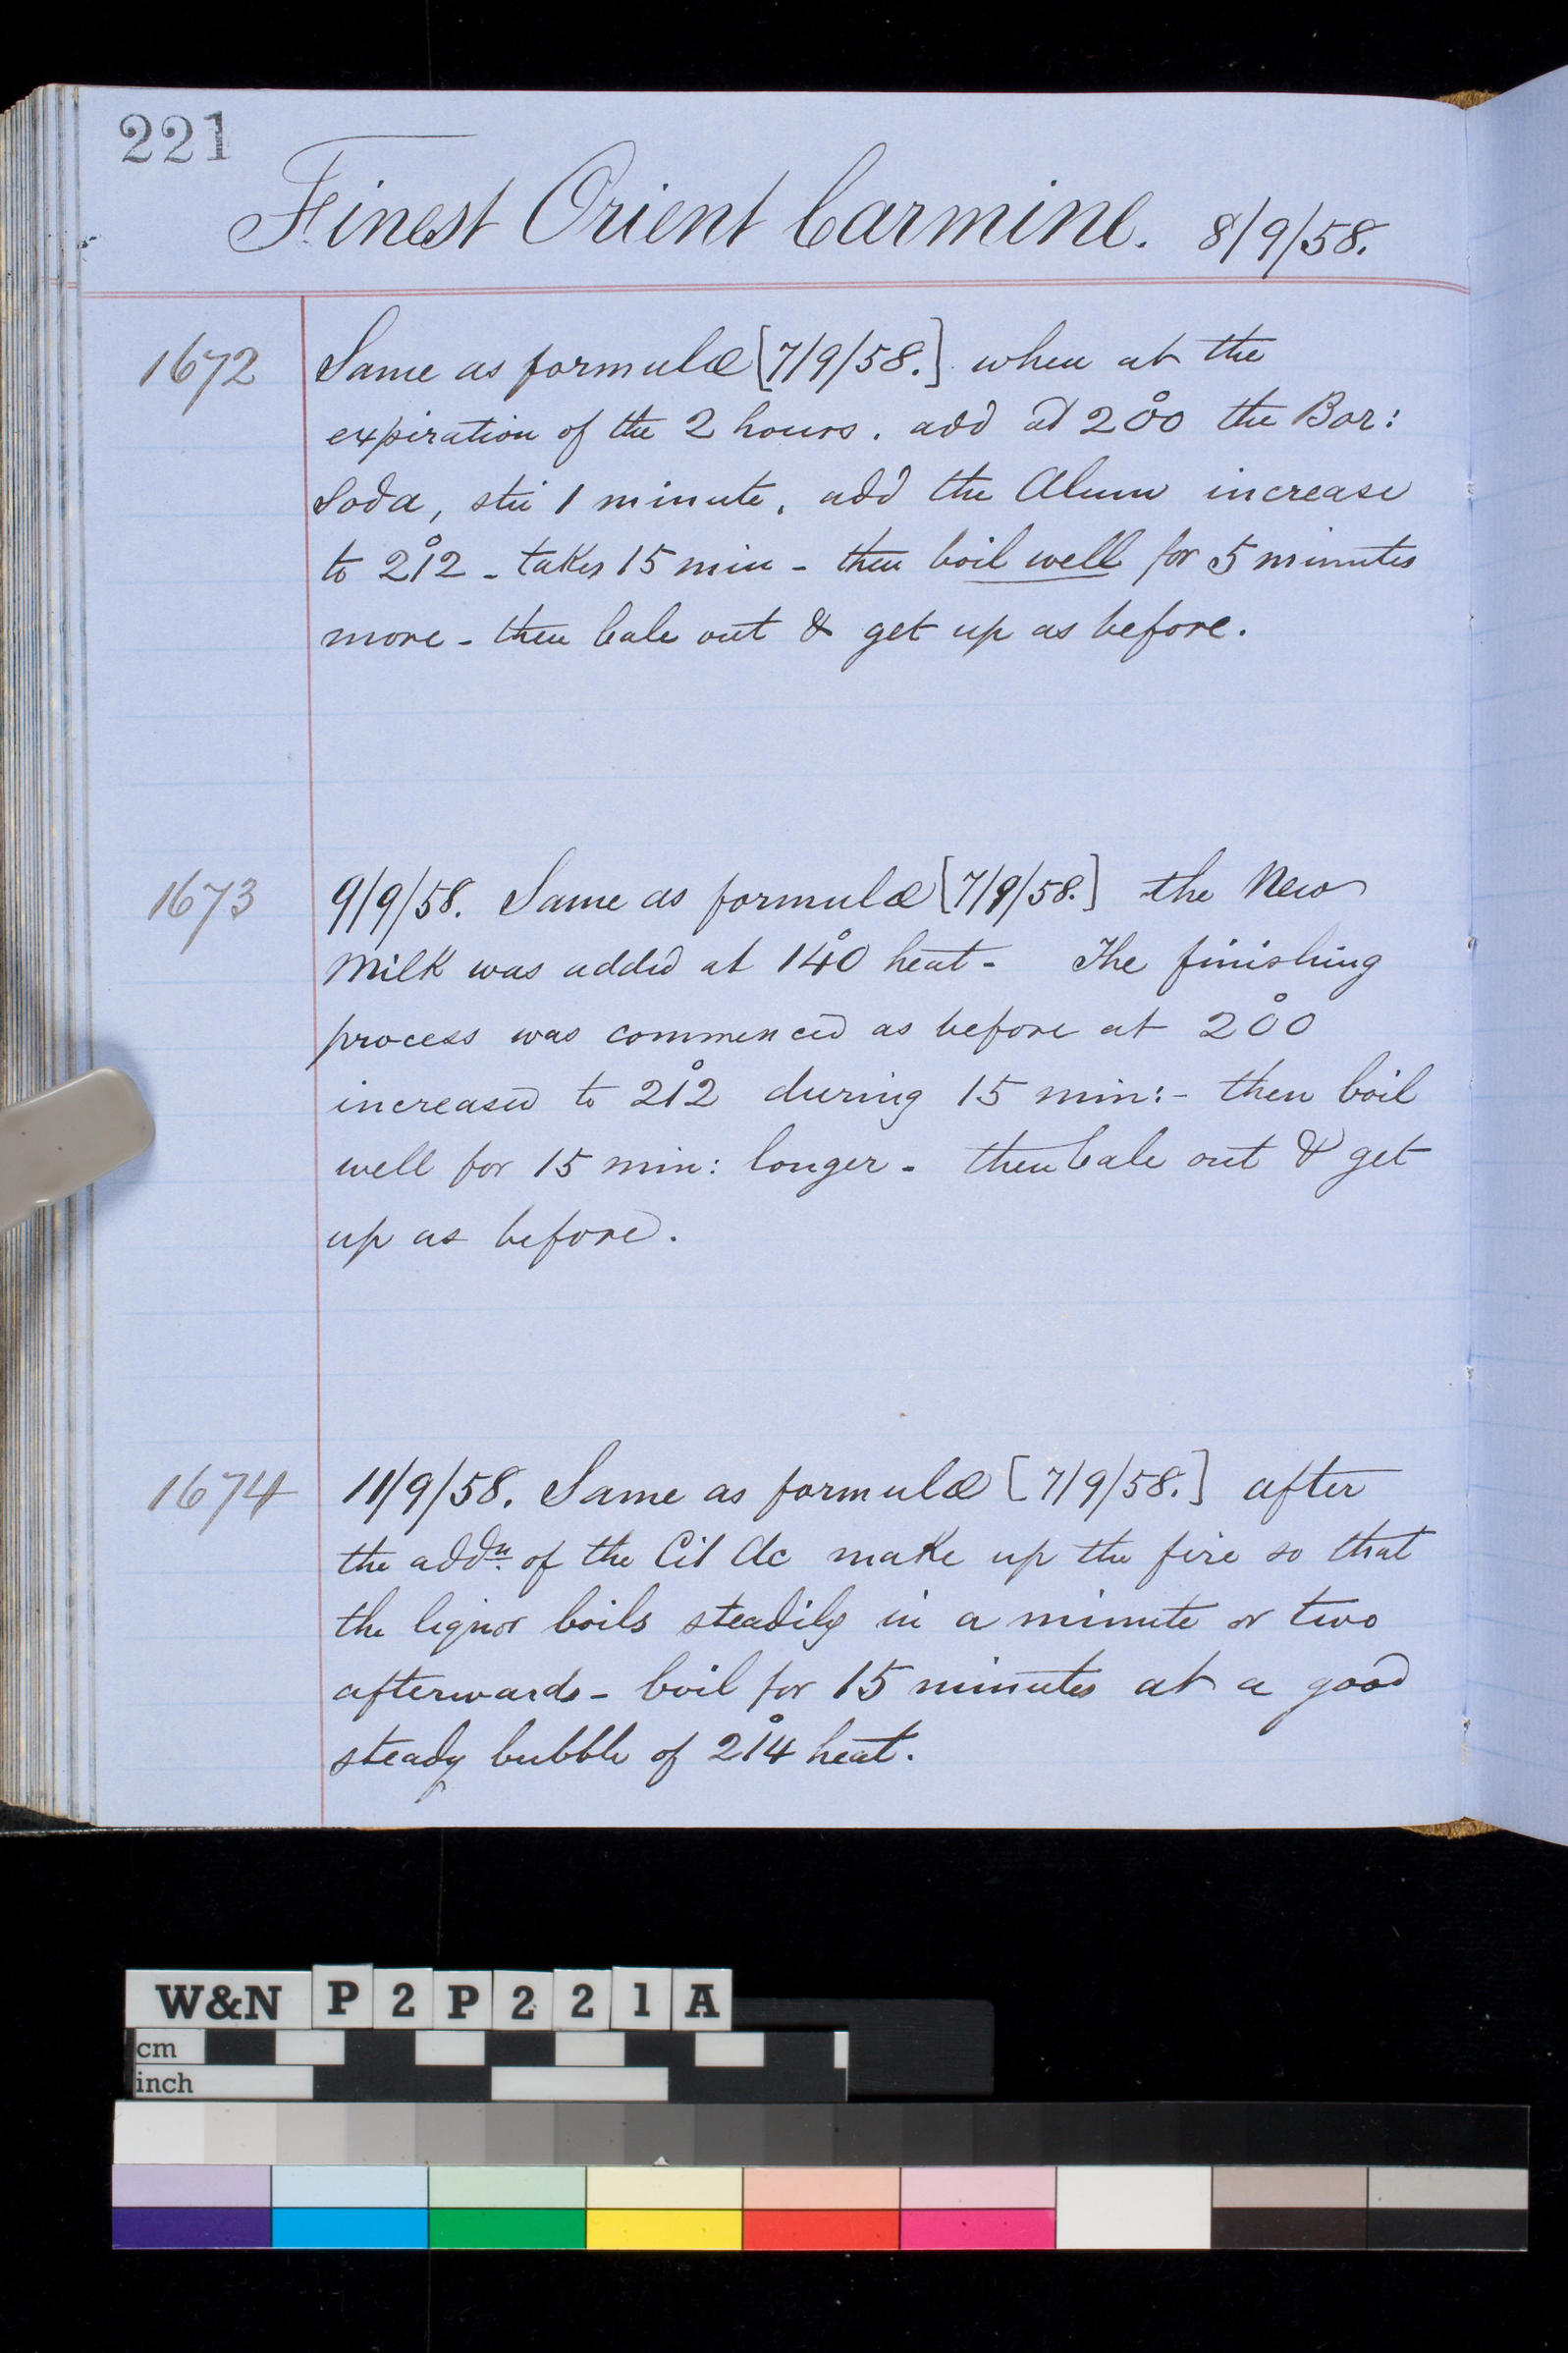 221
Finest Orient Carmine. 8/9/58.
1672 Same as formulæ [7/9/58.] when at the
expiration of the 2 hours. add at 200° the Bor:
Soda, stir 1 minute, add the Alum increase
to 212° - takes 15 min - then boil well for 5 minutes
more - then bale out & get up as before.
1673 9/9/58. Same as formulæ [7/9/58.] the New
Milk was added at 140° heat - The finishing
process was commenced as before at 200°
increased to 212° during 15 min:- then boil
well for 15 min: longer - then bale out & get
up as before.
1674 11/9/58. Same as formulæ [7/9/58.] after
the addn. of the Cit Ac make up the fire so that
the liquor boils steadily in a minute or two
afterwards - boil for 15 minutes at a good
steady bubble of 214° heat.
W&N P2P221A
cm
inch